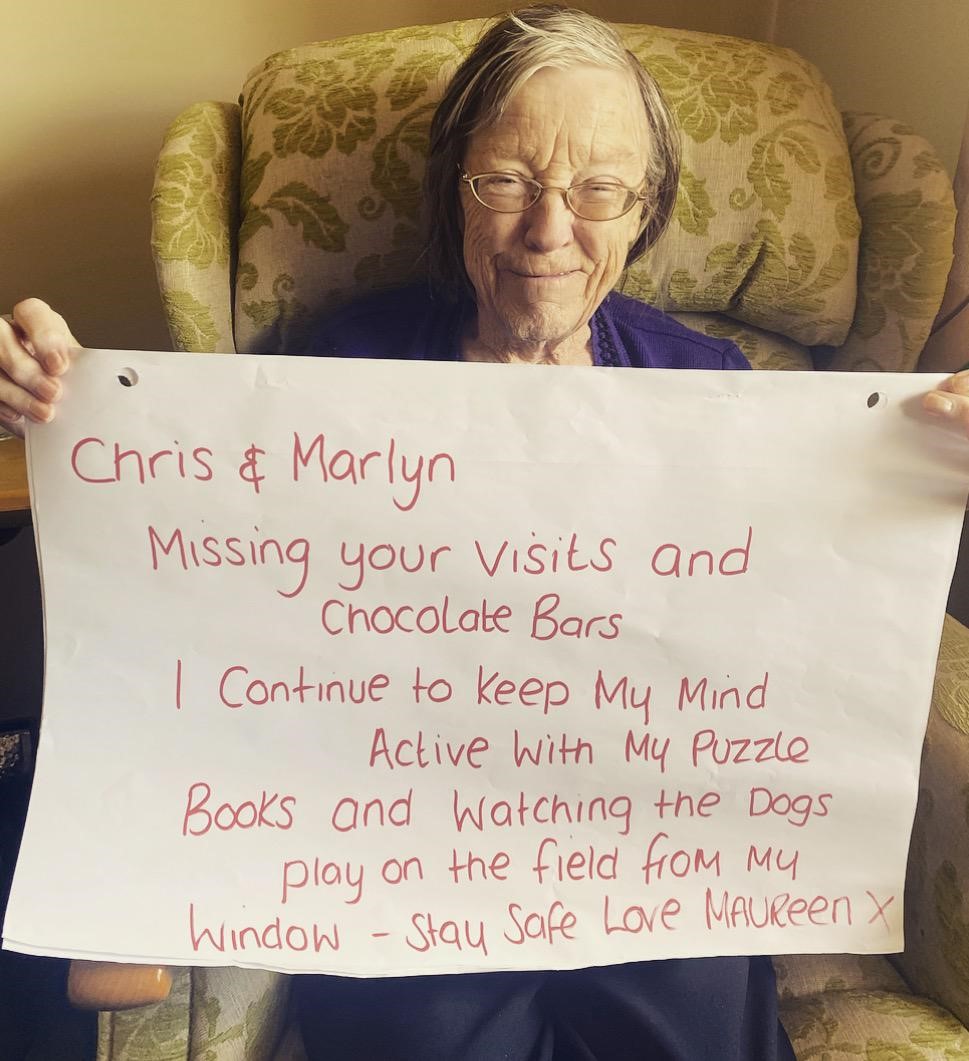 Chris & Marlyn
Missing your visits and
Chocolate Bars
I Continue to keep My Mind
Active With My Puzzle
Books and Watching the Dogs
play on the field from My
Window - Stay Safe Love MAUReen X